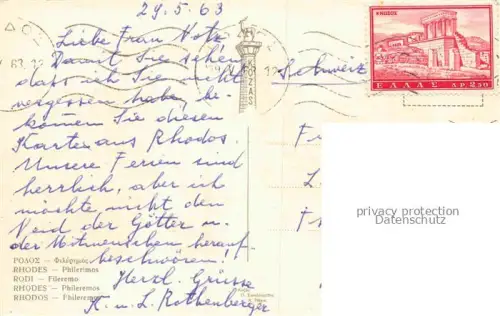 29.5.63
Liebe Frau Notz
Damit Sie sehen
dass ich Sie nicht
vergessen habe, be-
kommen Sie diesen
Karte aus Rhodos.
Unsere Ferien sind
herrlich, aber ich
möchte nicht den
Neid der Götter u.
der Mitmenschen herauf-
beschwören!
Herzl. Grüsse
K. u. L. Rothenberger
ΡΟΔΟΣ — Φιλέρημος
RHODES — Philerimos
RODI — Fileremo
RHODES — Phileremos
RHODOS — Phileremos
Schweiz
ΚΝΩΣΟΣ
ΕΛΛΑΣ ΔΡ. 2.50
F
L
F
privacy protection
Datenschutz